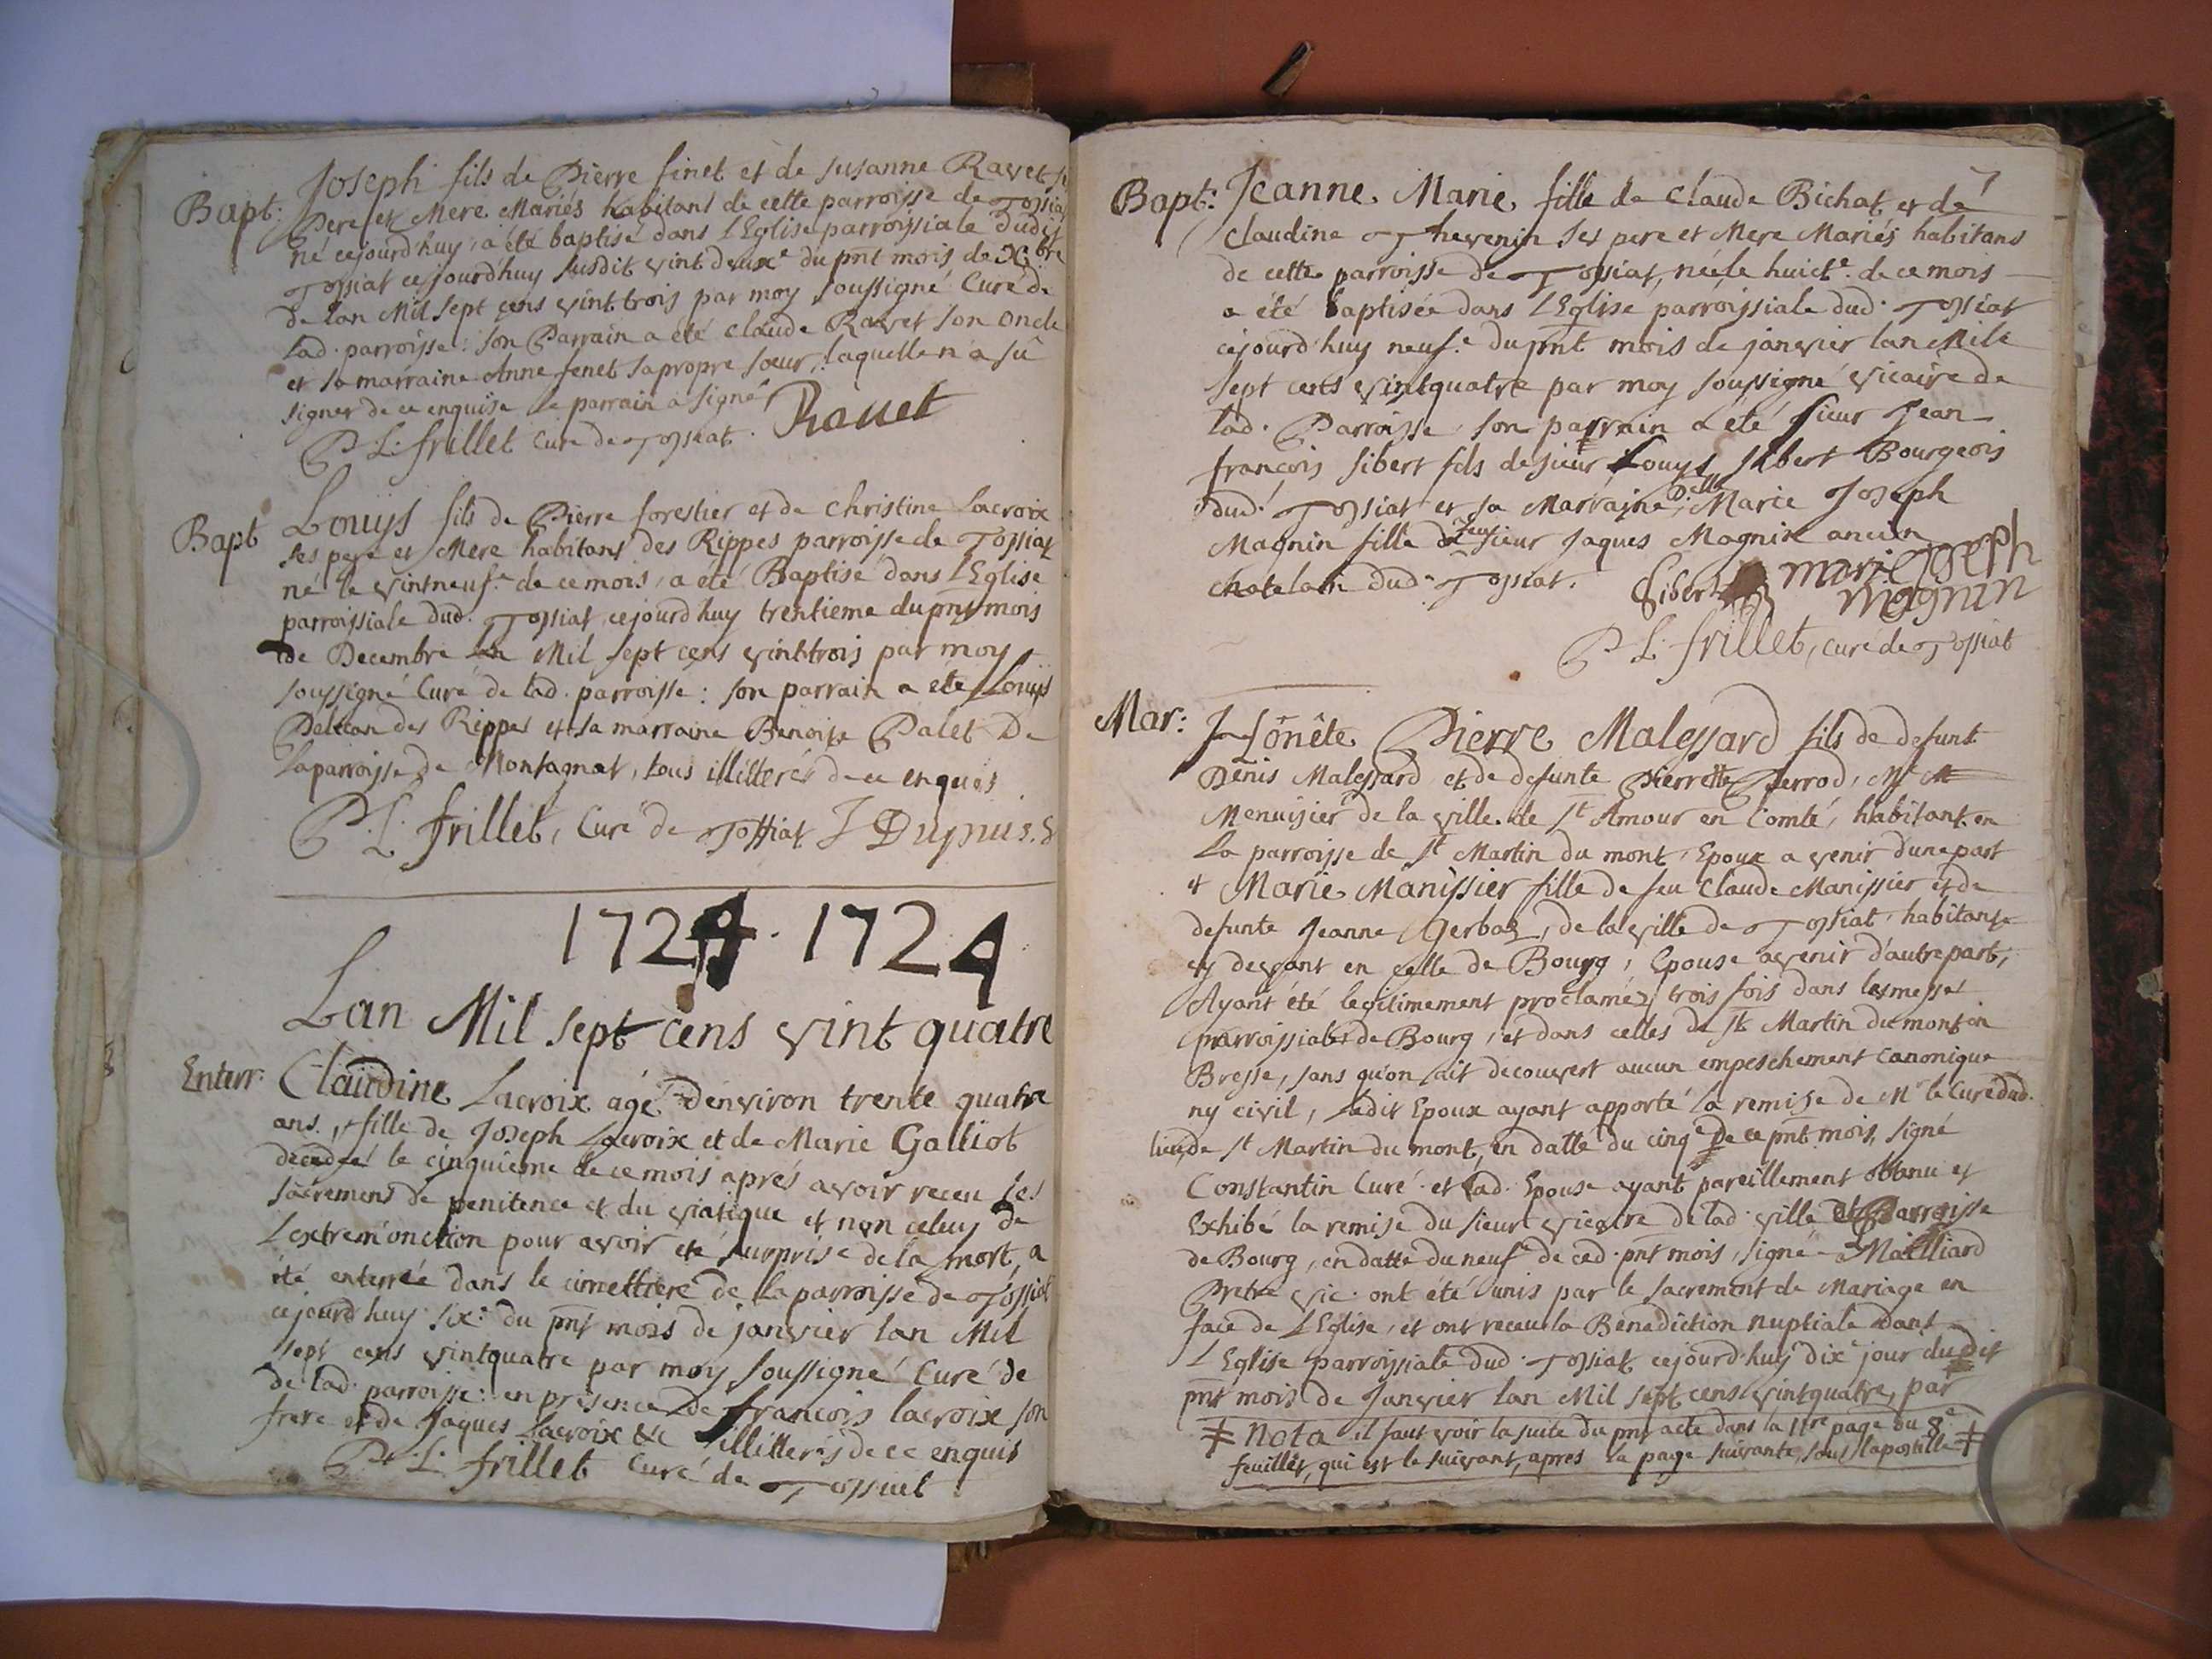 Bapt: Joseph fils de Pierre finet et de susanne Ravet
Pere et Mere Mariés habitans de cette parroisse de Tossia
né cejourd'huy, a été baptisé dans l'Eglise parroissiale dud
Tossiat cejourd'huy susdit vint deuxe du pnt mois de Xbre
de lan Mil sept cens vint trois par moy soussigné Curé de
lad. parroisse: son Parrain a été Claude Ravet son oncle
et sa marraine Anne fenet sa propre sœur, laquelle n'a sû
signer de ce enquise le parrain a signé
P. L. frillet curé de Tossiat. Rauet
Bapt Louys fils de Pierre forestier et de christine Lacroix
ses pere et Mere habitans des Rippes parroisse de Tossiat
né le vintneufe de ce mois, a été Baptisé dans l'Eglise
parroissiale dud. Tossiat cejourd'huy trentieme du pnt mois
de Decembre Mil sept cens vint trois par moy
soussigné Curé de lad. parroisse: son parrain a été Louys
des Rippes et sa marraine Benoite Palet De
la parroisse de Montagnat, tous illitterés de ce enquis
P. L. frillet, Curé de Tossiat J Dupuis.
1724. 1724
Lan Mil sept cens vint quatre
Enterr. Claudine Lacroix agé d'environ trente quatre
ans, fille de Joseph Lacroix et de Marie Galliot
decedeé le cinquieme de ce mois aprés avoir receu les
sacremens de penitence et du viatique et non celuy de
l'extrem'onction pour avoir eté surprise de la mort, a
été enterrée dans le cimettiere de la parroisse de Tossiat
cejourd'huy sixe du pnt mois de janvier lan Mil
sept cens vintquatre par moy soussigné Curé de
de lad. parroisse: en presence de françois lacroix son
frere et de Jaques Lacroix &c illitterés de ce enquis
P. L. frillet Curé de Tossiat
7
Bapt: Jeanne Marie fille de Claude Bichat et de
Claudine Thevenin ses pere et Mere Mariés habitans
de cette parroisse de Tossiat, née le huicte de ce mois
a été baptisée dans l'Eglise parroissiale dud. Tossiat
cejourd'huy neufe du pnt mois de janvier lan Mile
sept cents vintquatre par moy soussigné vicaire de
lad. Parroisse, son parrain a été sieur Jean
françois sibert fils de sieur Louys sibert Bourgeois
dud. Tossiat et sa Marraine Dlle Marie Joseph
Magnin fille de feu sieur Jaques Magnin ancien
chatelain dud. Tossiat. Sibert marie Joseph
magnin
P. L. frillet, curé de Tossiat
Mar: Honête Pierre Malessard fils de defunt
Denis Malessard et de defunte Pierrette Perrod, Mr
Menuisier de la ville de St Amour en Comté, habitant en
La parroisse de St Martin du mont, Epoux a venir d'une part
et Marie Manissier fille de feu Claude Manissier et de
defunte Jeanne Gerbaz, de la ville de Tossiat habitante
cy devant en celle de Bourg, Epouse avenir d'autre part,
Ayant été legitimement proclaméz trois fois dans les messes
parroissiales de Bourg, et dans celles de St Martin du mont en
Bresse, sans qu'on ait decouvert aucun empeschement canonique
ny civil, Ledit Epoux ayant apporté la remise de Mr le Curé dud.
lieu de St Martin du mont, en datte du cinqe De ce pnt mois, signé
Constantin Curé. et lad. Epouse ayant pareillement obtenu et
Exhibé la remise du sieur vicaire de lad. ville et Parroisse
de Bourg, en datte du neufe de ced. pnt mois, signé Mailliard
Pretre vic. ont été unis par le sacrement de Mariage en
face de L'Eglise, et ont receu la Benediction nuptiale Dans
L'Eglise parroissiale dud. Tossiat cejourd'huy dixe jour dudit
pnt mois de Janvier lan Mil sept cens vintquatre, par
Nota il faut voir la suite du pnt acte dans la 1re page du 8e
feuillet, qui est le suivant, apres la page suivante, sous lapostille